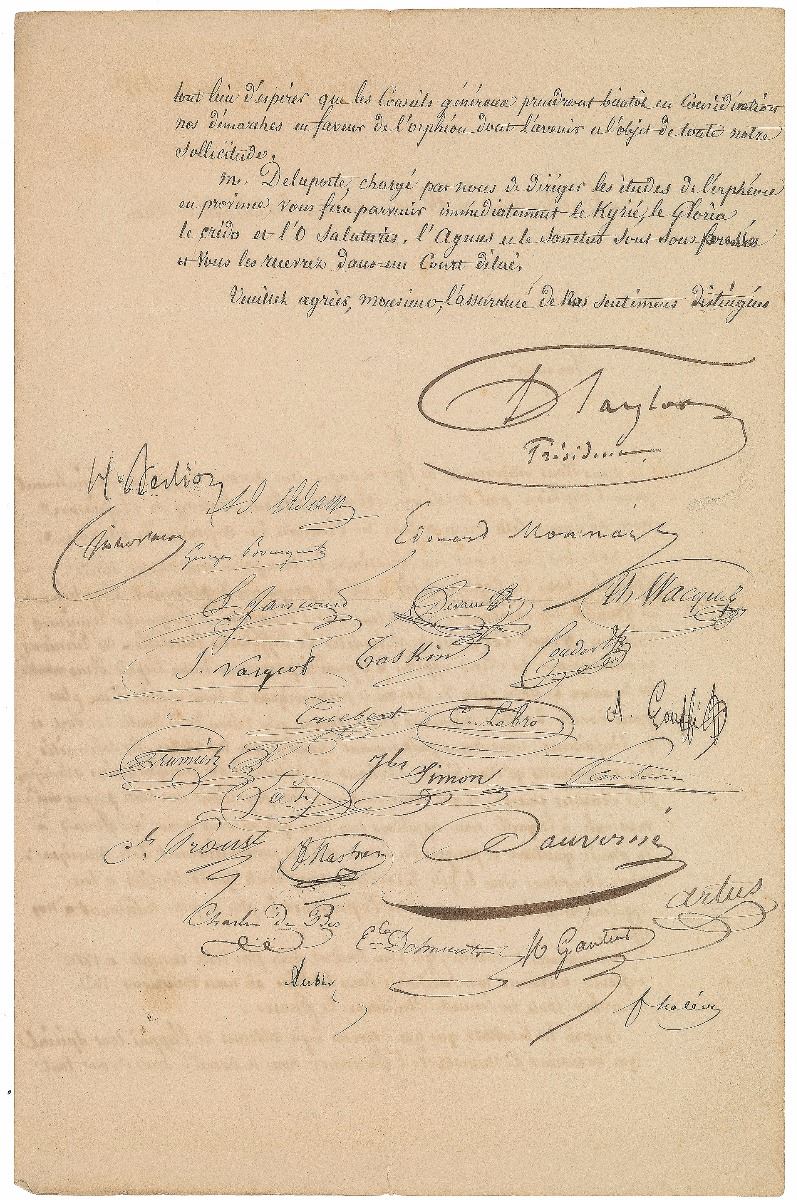 tout lieu d'espérer que les Conseils généraux prendront bientôt en Considération
nos démarches en faveur de l'orphéon dont l'avenir est l'objet de toute notre
sollicitude.
M. Delaporte, chargé par nous de diriger les études de l'orphéon
en province, vous fera parvenir immédiatement le Kyrié, le Gloria
le crédo et l'O Salutaris. l'Agnus et le Sanctus sont sous presse
et Vous les recevrez dans un Court délai.
Veuillez agréer, monsieur, l'assurance de nos sentimens distingués
D. Taylor
Président
H. Berlioz
Ad. Adam
Edouard Monnais
Georges Bousquet
Th. Wacquez
J. Vasseur
Taskin
Couder
Triebert
C. Labro
A. Gouffé
Jles Simon
Proust
Dauverné
Charles de Bez
artus
M Gautier